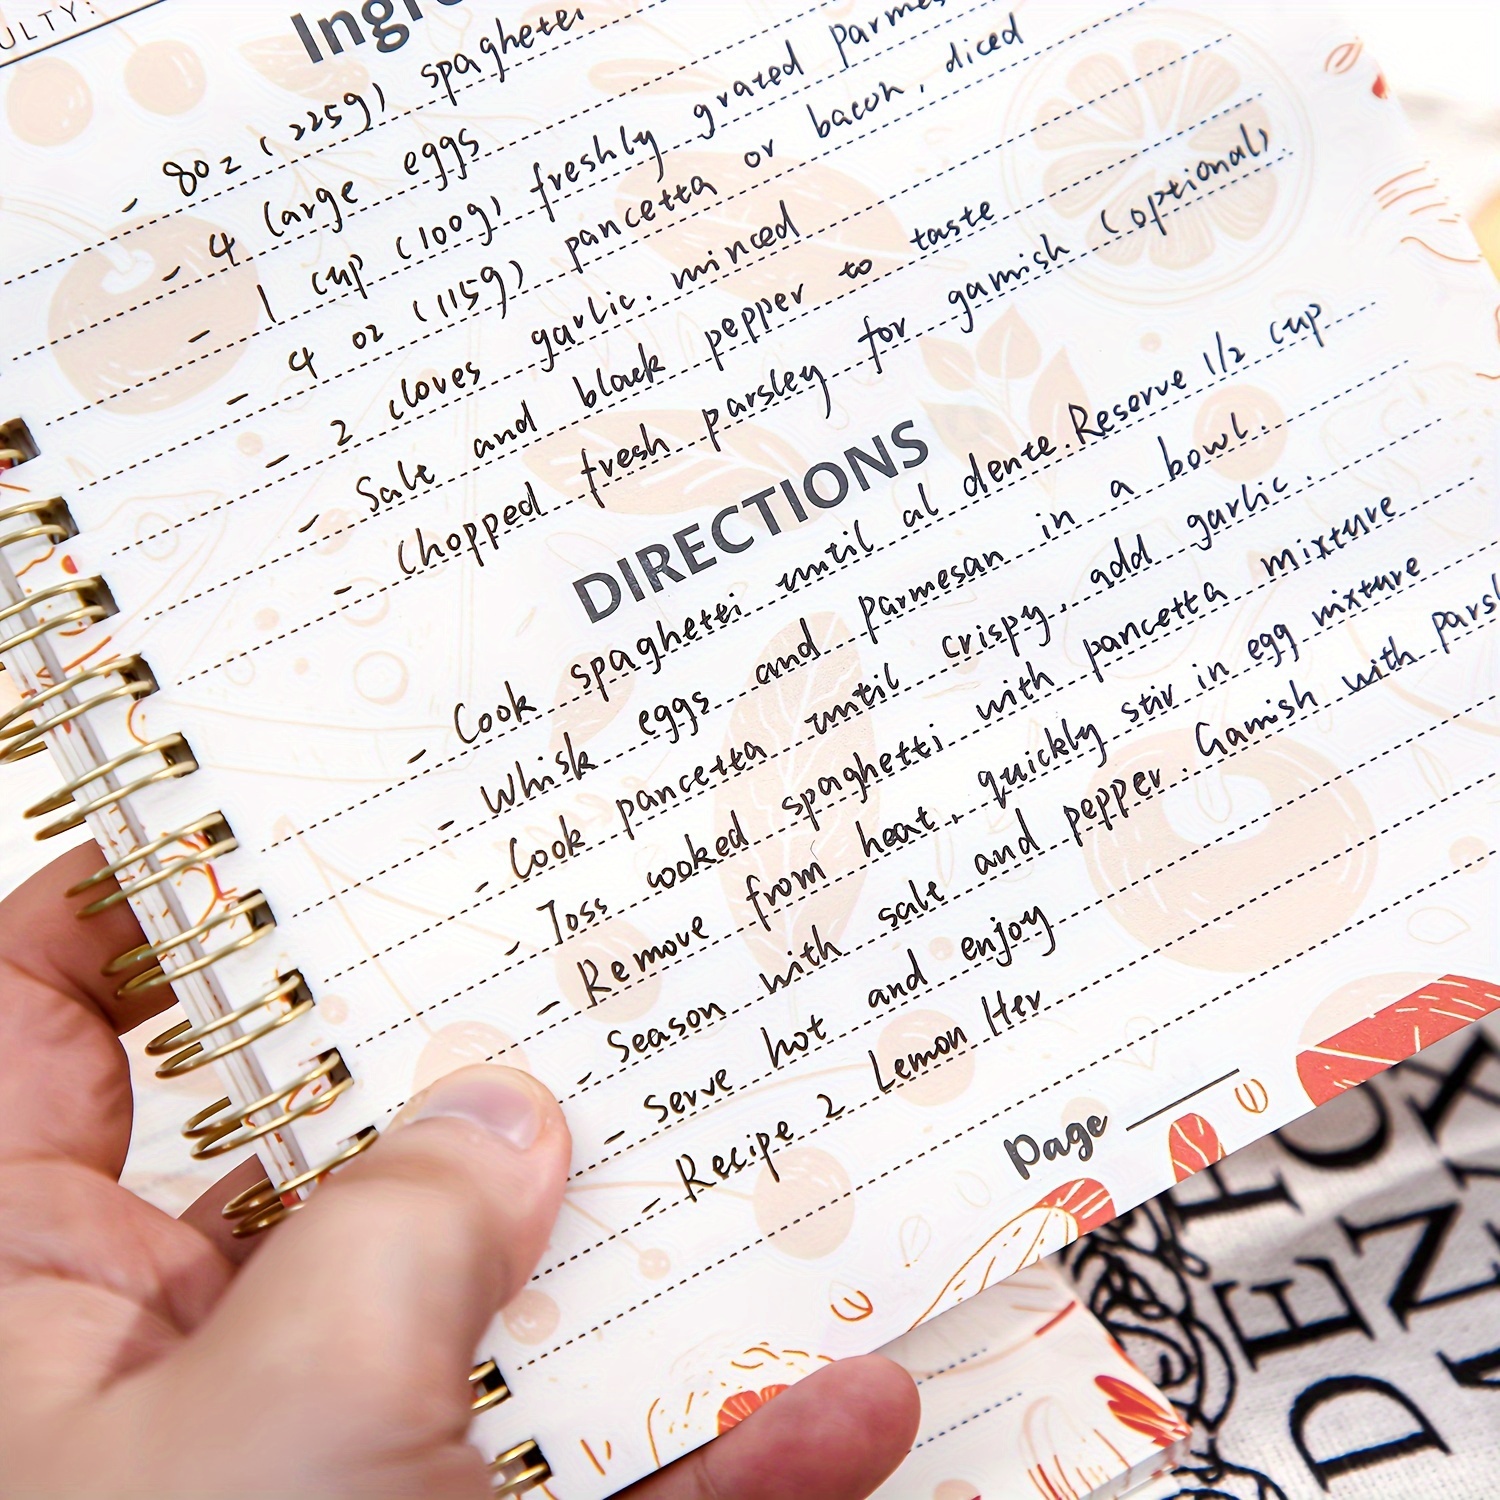 ULTY:
Ingre
- 8oz (225g) spaghetti
- 4 large eggs
- 1 cup (100g) freshly grated Parmes
- 4 oz (115g) pancetta or bacon, diced
- 2 cloves garlic. minced
- Salt and black pepper to taste
- Chopped fresh parsley for garnish (optional).
DIRECTIONS
- Cook spaghetti until al dente. Reserve 1/2 cup
- Whisk eggs and Parmesan in a bowl.
- Cook pancetta until crispy, add garlic.
- Toss cooked spaghetti with pancetta mixture
- Remove from heat, quickly stir in egg mixture
- Season with salt and pepper. Garnish with parsl
- Serve hot and enjoy
- Recipe 2 Lemon Her
Page
DE
DEN